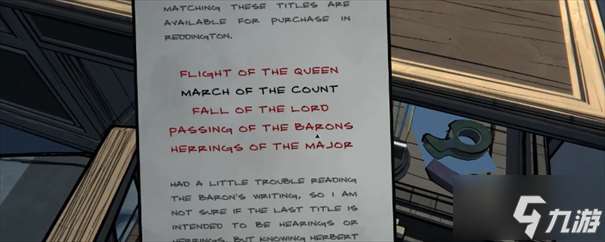 MATCHING THESE TITLES ARE
AVAILABLE FOR PURCHASE IN
REDDINGTON.
FLIGHT OF THE QUEEN
MARCH OF THE COUNT
FALL OF THE LORD
PASSING OF THE BARONS
HERRINGS OF THE MAJOR
HAD A LITTLE TROUBLE READING
THE BARON'S WRITING, SO I AM
NOT SURE IF THE LAST TITLE IS
INTENDED TO BE HEARINGS OR
HERRINGS, BUT KNOWING HERBERT
九游